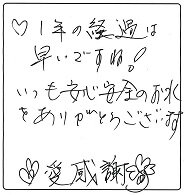 ♡1年の経過は
早いですね!
いつも安心安全のお水
をありがとうございます
愛感謝